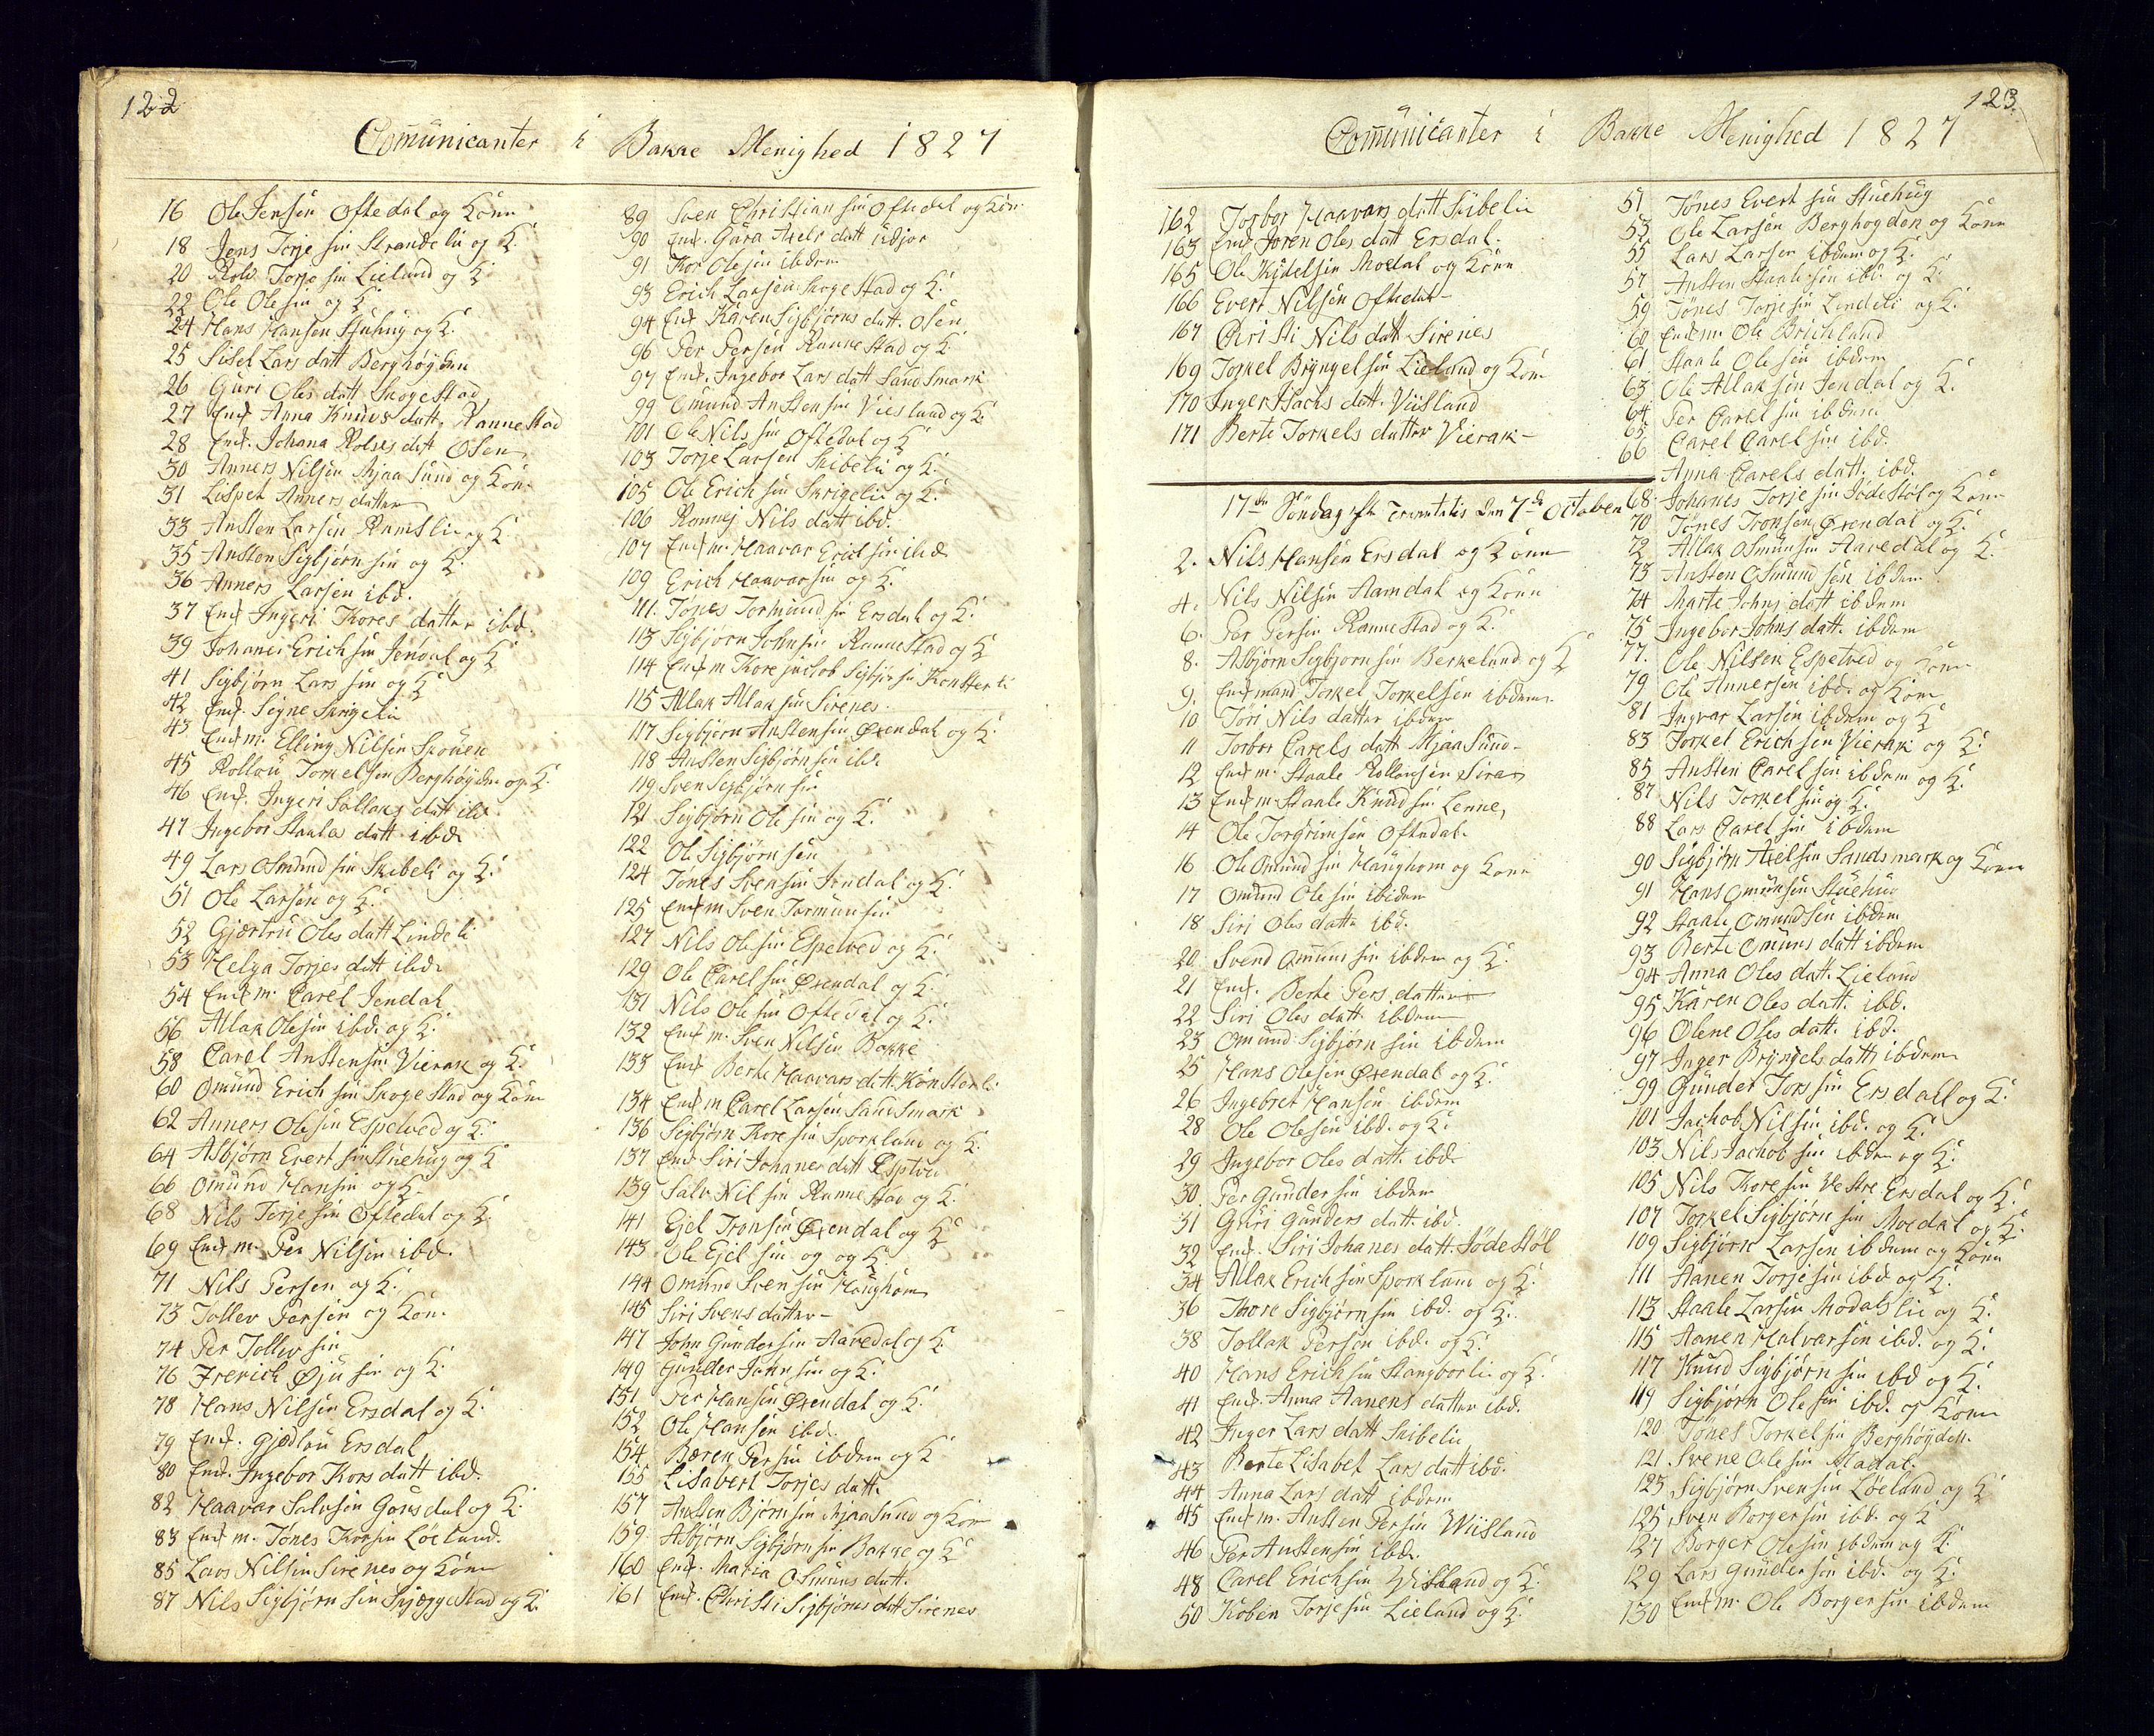 122
Comunicanter i Bakke Menighed 1827
16 Ole Jensen Oftedal og Kone
18 Jens Torje sin Strandelie og K.
20 Rolv Torje sin Lieland og K
22 Ole Olesin og K.
24 Hans Hansen Stuhug og K.
25 Sisel Lars datt Berghøgden
26 Guri Oles datt Skogestad
27 Enk Anna Knuds datt. Rannestad
28 Enk. Johana Rolvs datt Osen
30 Anners Nilsen Mjaasund og Kone
31 Lisper Anners datter
33 Ansten Larsen Ramslie og K.
35 Ansten Sigbjørn sin og K.
36 Anners Larsen ibd.
37 Enk Ingeri Kores datter ibd.
39 Johanes Erich sin Jendal og K
41 Sigbjørn Lars sin og K
42 Enk. Signe Skrigelie
43 Enk m. Elling Nilsen Skouen
45 Rollou Torkelsen Berghøgden og K.
46 Enk. Ingeri Sallaks datt ibd
47 Ingebor Staales datt ibd
49 Lars Osmund sin Skibeli og K.
51 Ole Larsen og K.
52 Gjertru Oles datt Lindeli
53 Helga Torjes datt ibd.
54 Enk m. Carel Jendal
56 Allak Olesin ibd. og K.
58 Carel Anstensin Vierak og K.
60 Omund Erich sin Skogestad og Kone
62 Anners Olesin Espetved og K.
64 Asbjørn Evert sin Stuehug og K
66 Omund Hansin og K
68 Nils Torje sin Oftedal og K.
69 Enk m. Per Nilsin ibd.
71 Nils Persen og K.
73 Tollev Persen og Kon.
74 Per Tollev sin
76 Frerich Øju sin og K.
78 Hans Nilsin Ersdal og K.
79 Enk. Gjødlou Ersdal
80 Enk. Ingebor Kors datt ibd.
82 Haavar Salvesen Gousdal og K.
83 Enk m. Tønes Korsin Løeland.
85 Lars Nilsin Sirenes og Kone
87 Nils Sigbjørn sin Skjeggestad og K.
89 Sven Christian sin Oftedal og Kon
90 Enk. Gura Axels datt Udjor
91 Kor Olesin ibdem
93 Erich Larsen Skogestad og K.
94 Enk Karen Sigbjørns datt. Osen
96 Per Persen Rannestad og K
97 Enk. Ingebor Lars datt Sandsmark
99 Omund Anstensin Vieslund og K
101 Ole Nils sin Oftedal og K
103 Torje Larsen Skibelie og K.
105 Ole Erich sin Skrigelie og K.
106 Ronnej Nils datt ibd.
107 Enk m. Haavar Erich sin ibd
109 Erich Haavarsin og K.
111. Tønes Tormund sin Ersdal og K.
113 Sigbjørn Johnsin Rannestad og K
114 Enk m Kore Jachob Sigbjør sin Konsterli
115 Allak Allak sin Sirenes.
117 Sigbjørn Anstensin Øxendal og K.
118 Ansten Sigbjørnsin ibd
119 Sven Sigbjørn sin
121 Sigbjørn Ole sin og K.
122 Ole Sigbjørnsen
124 Tønes Svensin Jendal og K.
125 Enk m Sven Tormunsin
127 Nils Ole sin Espetved og K.
129 Ole Carel sin Øxendal og K.
131 Nils Ole sin Oftedal og K.
132 Enk m. Sven Nilsen Bakke
133 Enk Berte Haavars datt. Konsterli
134 Enk m Carel Larsen Sansmark
136 Sigbjørn Kore sin Sporkland og K.
137 Enk Siri Johanes datt Espetved
139 Salv. Nil sin Rannestad og K.
141 Ejel Tronsin Øxendal og K
143 Ole Ejel sin og og K.
144 Omund Sven sin Haughom
145 Siri Svens datter
147 John Gundersin Aaredal og K.
149 Gunder John sin og K.
151 Per Hansin Øxendal og K.
152 Ole Hansen ibd.
154 Bæren Persin ibdem og K
155 Lisabert Torjes datt.
157 Ansten Bjørnsin Mjaasund og Kon
159. Asbjørn Sigbjørn sin Bakke og K
160 Enk. Maria Osmuns datt.
161 Enk. Christi Sigbjørns datt Sirenes
123.
Comunicanter i Bakke Menighed 1827
162 Torbor Haavars datt Skibelie
163 Enk Joren Oles datt Ersdal.
165 Ole Kidelsin Moedal og Kone
166 Evert Nilsen Oftedal
167 Christi Nils datt Sirenes
169 Torkel Bryngelsin Lieland og Kone
170 Inger Isachs datt. Viisland
171 Berte Torkels datter Vierak
17de Søndag eft Trinitatis den 7de October
2. Nils Hansen Ersdal og Kone
4. Nils Nilsen Aamdal og Kone
6. Per Persin Rannestad og K.
8. Asbjørn Sigbjørnsin Berkeland og K
9. Enkmand Torkel Torkelsen ibdem
10 Jøri Nils datter ibdem
11 Torbor Carels datt Mjaasund
12 Enk m. Staale Rollousen Sirenes
13 Enk m Staale Knud sin Lenne,
14 Ole Torgrimsen Oftedal.
16 Ole Omund sin Haughom og Kone
17 Omund Ole sin ibidem
18 Siri Oles datte ibd.
20 Svend Omuns sin ibdem og K.
21 Enk. Berte Pers datter
22 Siri Oles datt ibdem
23 Omund Sigbjørn sin ibdem
25 Hans Olesin Øxendal og K.
26 Ingebret Hansen ibdem
28 Ole Olesin ibd. og K.
29 Ingebor Oles datt. ibd.
30 Per Gunder sin ibdem
31 Guri Gunders datt. ibd.
32 Enk. Siri Johanes datt. Jødestøl
34 Allak Erich sin Sporkland og K.
36 Thore Sigbjørnsin ibd. og K.
38 Tollak Persen ibd. og K.
40 Hans Erich sin Stangborlie og K.
41 Enk. Anna Aanens datter ibd.
42 Inger Lars datt Skibelie
43 Berte Lisabet Lars datt ibd.
44 Anna Lars datt ibdem
45 Enk m. Ansten Persin Wiisland
46 Per Anstensin ibd.
48 Carel Erichsin Viisland og K.
50 Koben Torje sin Lieland og K.
51 Tønes Evert sin Stuehug
53 Ole Larsen Berghogden og Kone
55 Lars Larsen ibdem og K.
57 Ansten Staalesin ibd. og K.
59 Tønes Torje sin Lindeli og K.
60 Enkem. Ole Brichland
61 Staale Ole sin ibdem
63 Ole Allaksen Jendal og K.
64 Per Carel sin ibdem
65 Carel Carel sin ibd.
66 Anna Carels datt. ibd.
68. Johanes Torje sin Jødestøl og Kone
70 Tønes Tronsen Øxendal og K.
72 Allak Osmunsin Aaredal og K.
73 Ansten Osmund sin ibdem
74 Marte Johns datt ibdem
75 Ingebor Johns datt. ibdem
77. Ole Nilsen Espetved og Kone
79 Ole Annersen ibd. og Kone
81 Ingvar Larsen ibdem og K
83 Torkel Erichsen Vierak og K.
85 Ansten Carelsin ibdem og K.
87 Nils Torkelsin og K.
88 Lars Carel sin ibdem
90 Sigbjørn Axelsin Sandsmark og Kone
91 Hans Omunsin Stuehug
92 Staale Omundsen ibdem
93 Berte Omuns datt ibdem
94 Anna Oles datt. Lieland
95 Karen Oles datt. ibd.
96 Olene Oles datt. ibd.
97 Inger Bryngels datt. ibdem
99 Gunder Tors sin Ersdall og K.
101 Jachob Nilsin ibd. og K.
103 Nils Jachob sin ibdem og K.
105 Nils Kore sin Vestre Ersdal og K.
107 Torkel Sigbjørn sin Moedal og K.
109 Sigbjørn Larsen ibdem og Kone
111 Aanen Torje sin ibd. og K.
113 Staale Larsin Modalslie og K.
115 Aanen Halvarsen ibd. og K.
117 Knud Sigbjørn sin ibd og K.
119 Sigbjørn Ole sin ibd. og Kone
120 Tønes Torkelsin Berghøgden
121 Svene Ole sin Aladal.
123 Sigbjørn Svensin Løeland og K
125 Sven Borgersin ibd. og K
127 Borger Olesin ibdem og K.
129 Lars Gundersin ibd. og K.
130 Enk m. Ole Borgersin ibdem